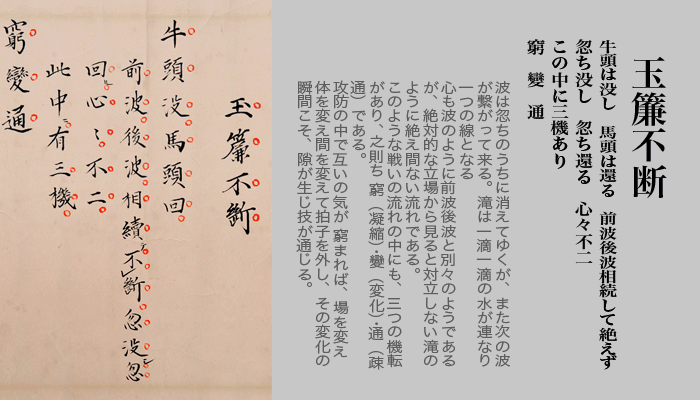 玉簾不断
牛頭は没し　馬頭は還る　前波後波相続して絶えず
忽ち没し　忽ち還る　心々不二
この中に三機あり
窮　變　通
波は忽ちのうちに消えてゆくが、また次の波
が繋がって来る。滝は一滴一滴の水が連なり
一つの線となる
心も波のように前波後波と別々のようである
が、絶対的な立場から見ると対立しない滝の
ように絶え間ない流れである。
このような戦いの流れの中にも、三つの機転
があり、之則ち 窮（凝縮）・變（変化）・通（疎
通）である。
攻防の中で互いの気が 窮まれば、場を変え
体を変え間を変えて拍子を外し、その変化の
瞬間こそ、隙が生じ技が通じる。
玉簾不断
牛頭没馬頭回
前波後波相續不断忽没忽
回心々不二
此中有三機
窮變通